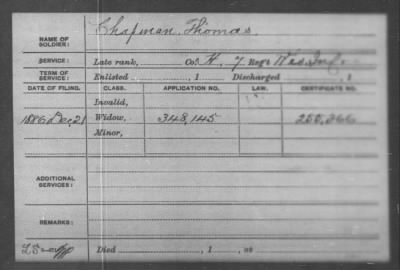 NAME OF SOLDIER: Chapman, Thomas
SERVICE: Late rank, Co. H, 7 Reg't Wis Inf.
TERM OF SERVICE: Enlisted , 1 Discharged , 1
DATE OF FILING. CLASS. APPLICATION NO. LAW. CERTIFICATE NO.
Invalid,
1886 Dec. 21 Widow, 348,145 250,266
Minor,
ADDITIONAL SERVICES:
REMARKS:
Died , 1 , at